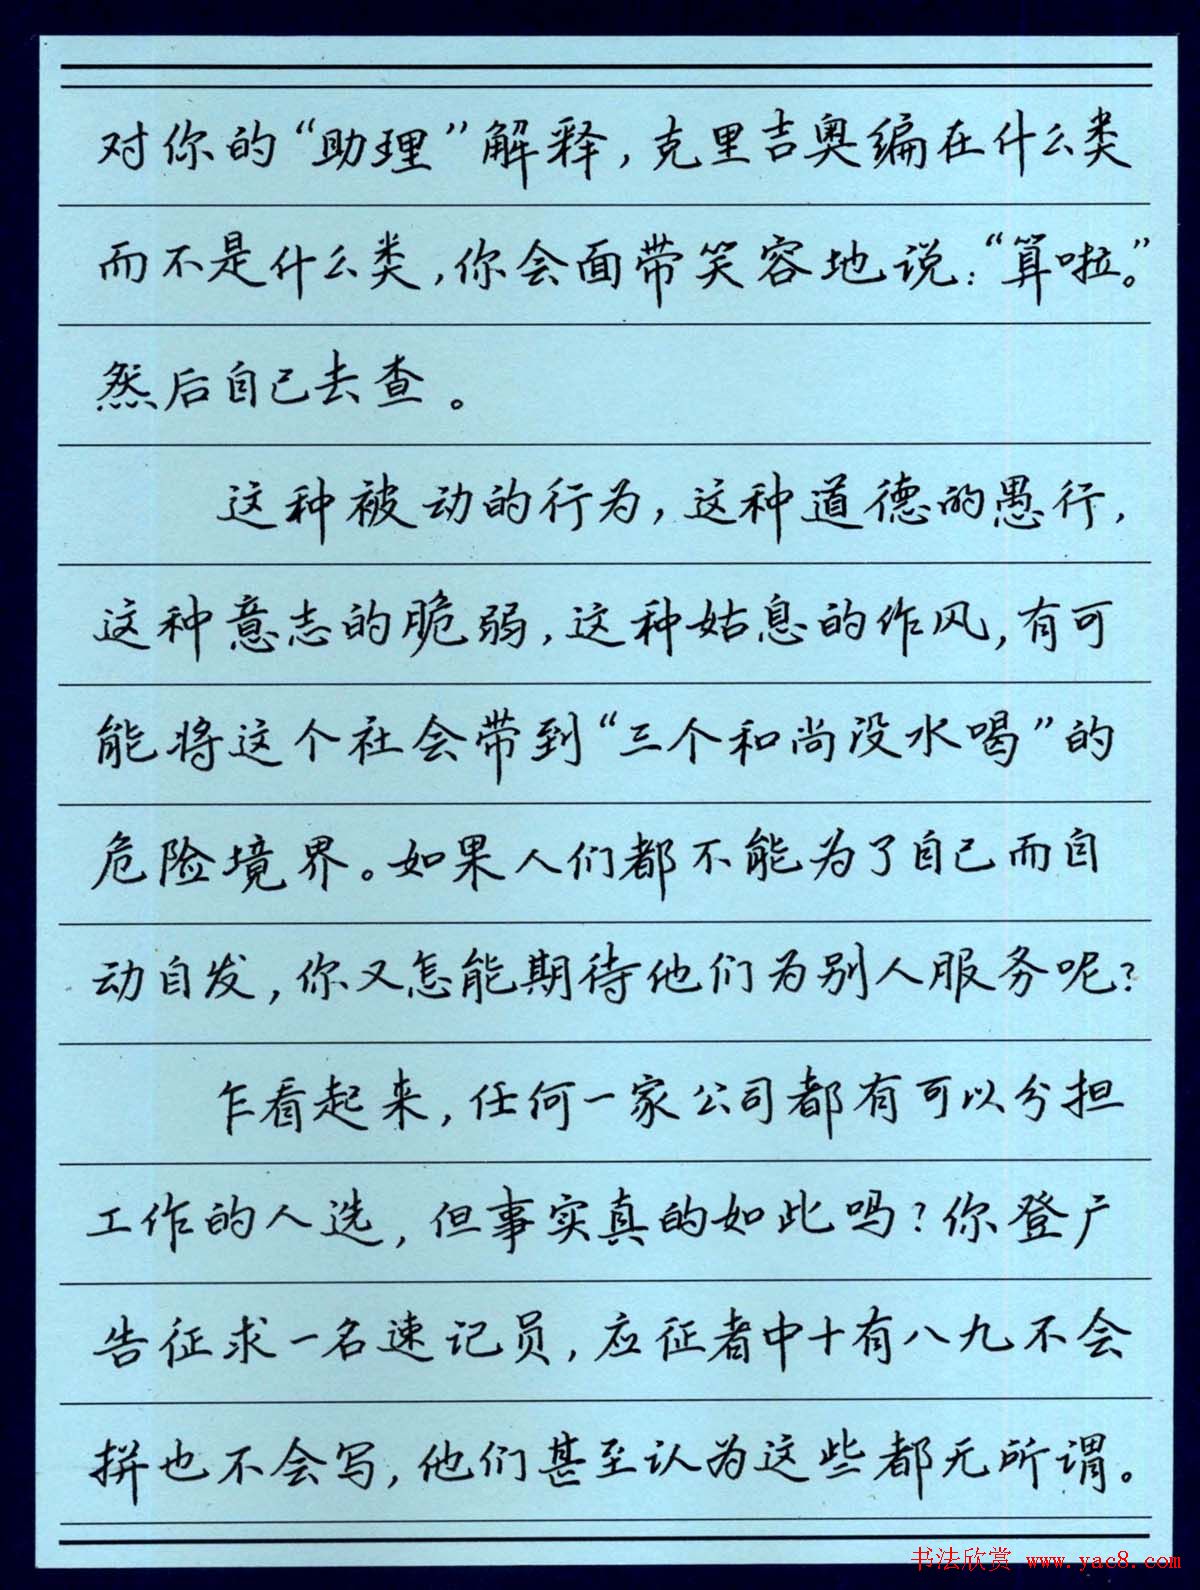 对你的“助理”解释,克里吉奥编在什么类
而不是什么类,你会面带笑容地说:“算啦。”
然后自己去查。
这种被动的行为,这种道德的愚行,
这种意志的脆弱,这种姑息的作风,有可
能将这个社会带到“三个和尚没水喝”的
危险境界。如果人们都不能为了自己而自
动自发,你又怎能期待他们为别人服务呢?
乍看起来,任何一家公司都有可以分担
工作的人选,但事实真的如此吗?你登广
告征求一名速记员,应征者中十有八九不会
拼也不会写,他们甚至认为这些都无所谓。
书法欣赏 www.yac8.com